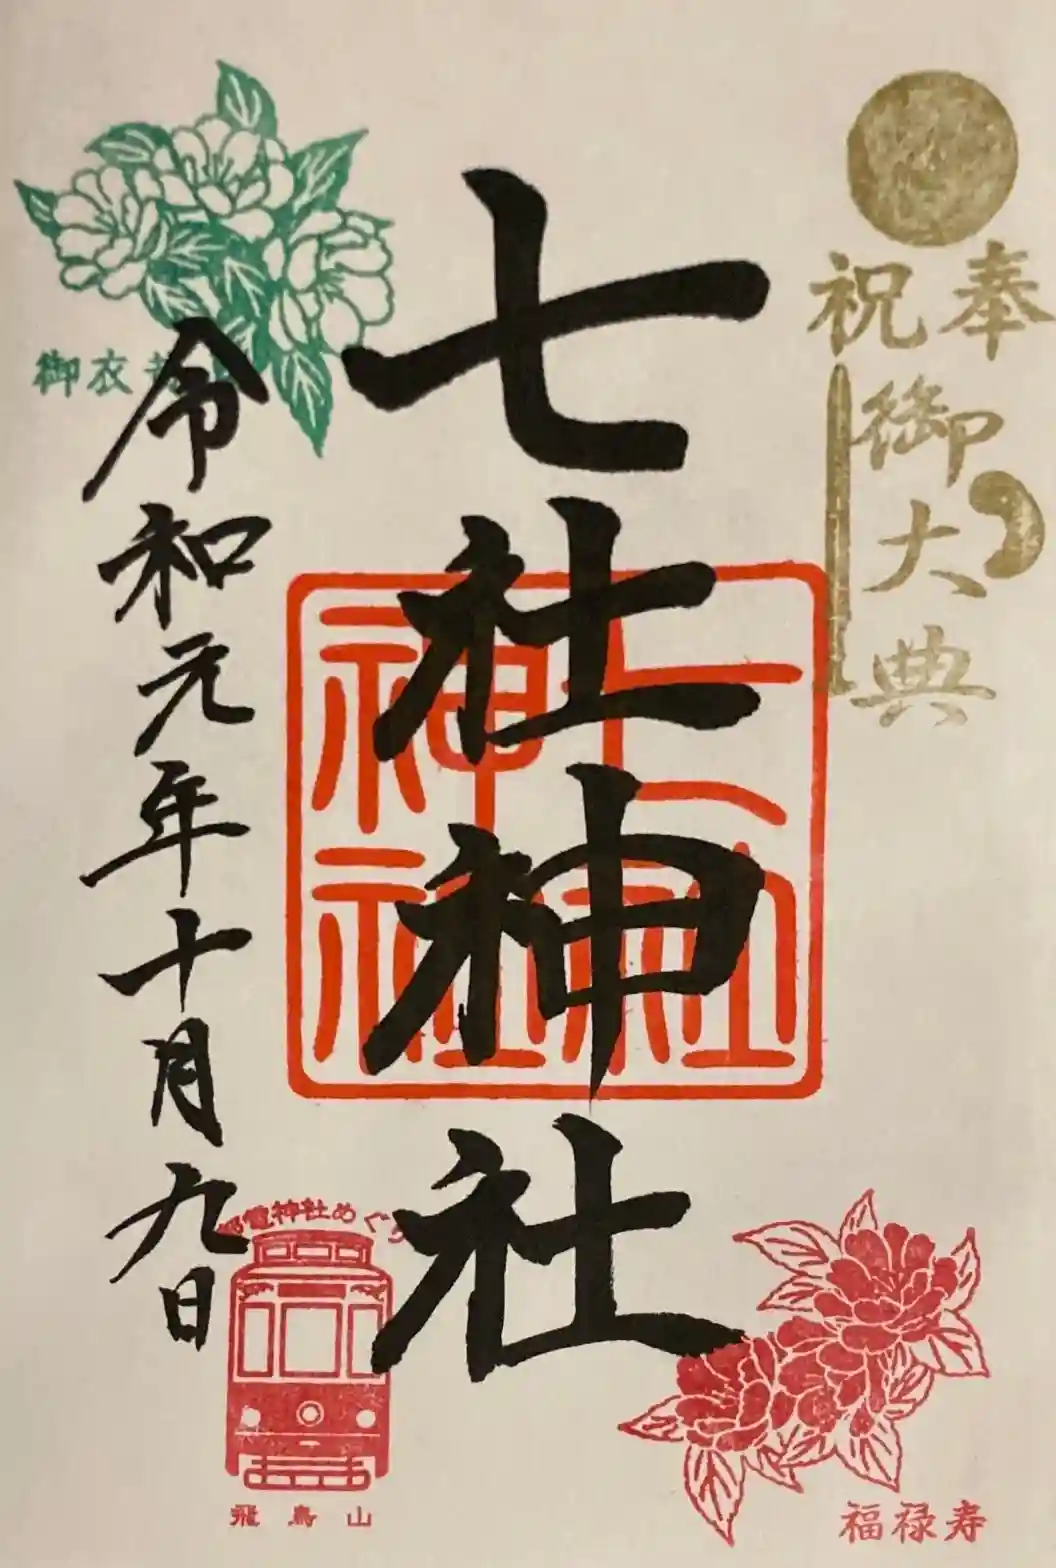 奉祝
御大典
七社神社
七社神社
令和元年十月九日
御衣
電神社めぐ
飛鳥山
福禄寿